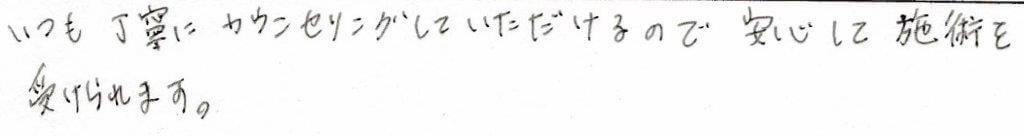 いつも丁寧にカウンセリングしていただけるので安心して施術を
受けられます。